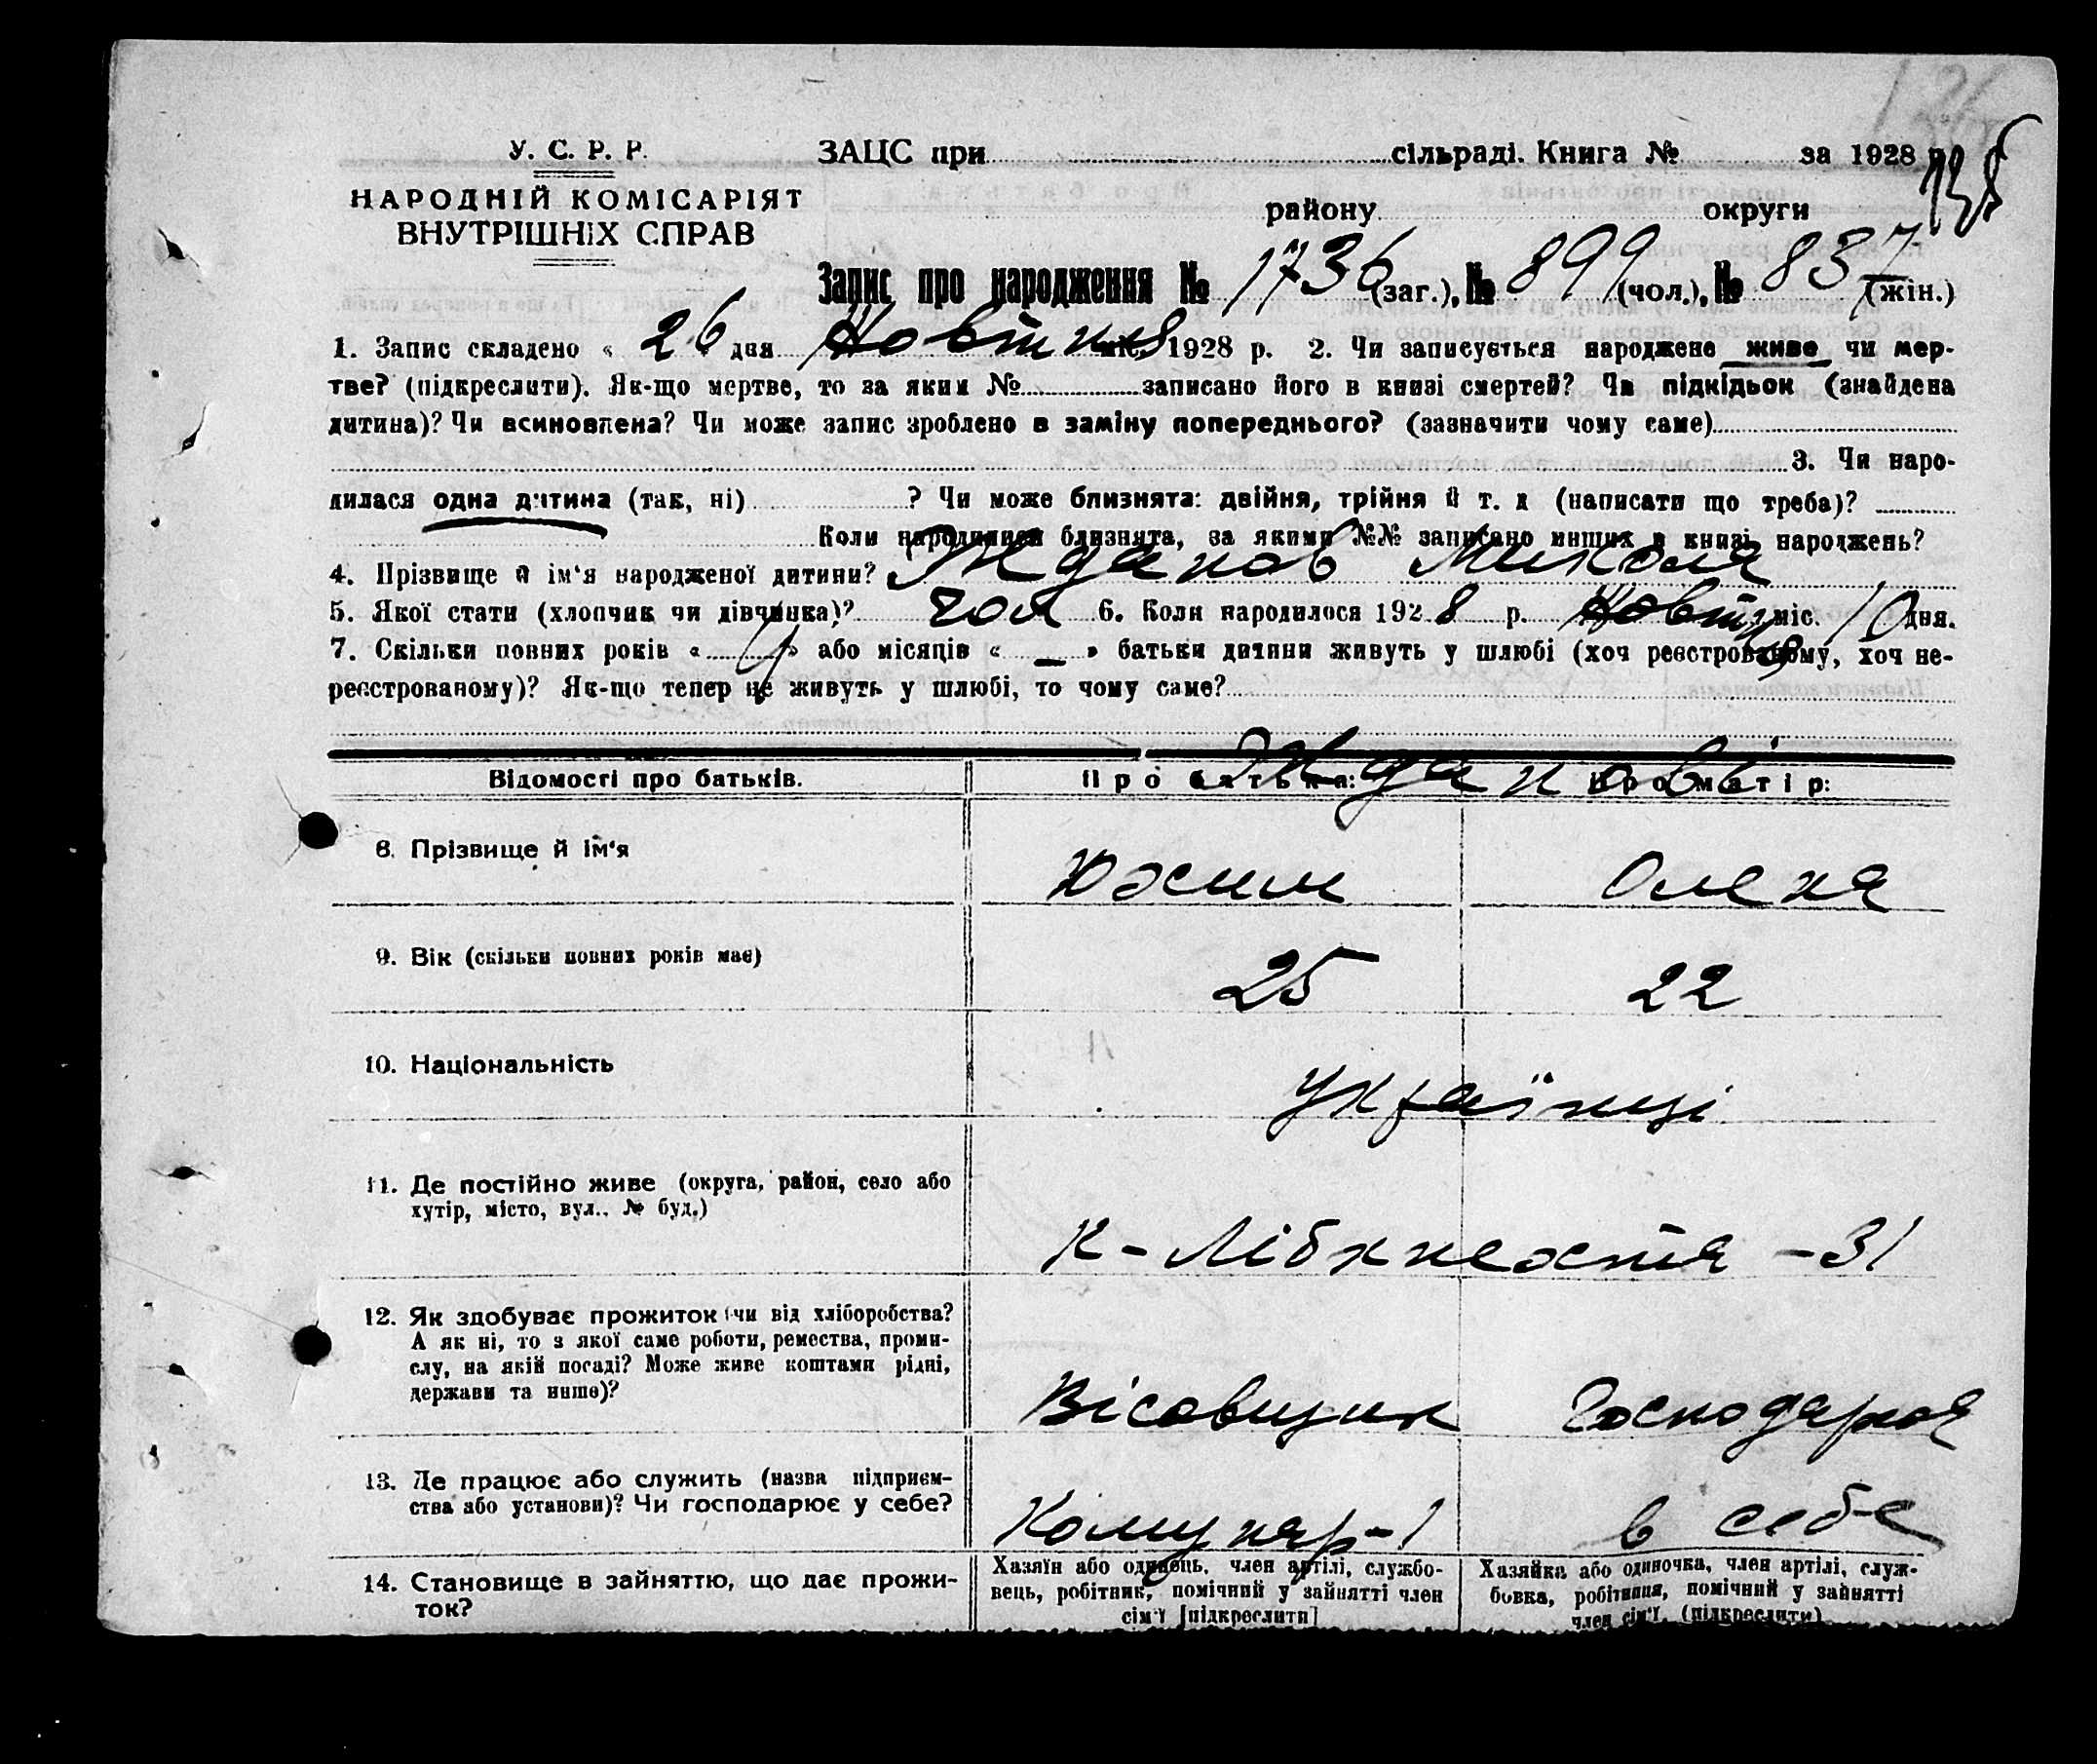 136
138
У. С. Р. Р. ЗАЦС при сільраді. Книга № за 1928 р.
НАРОДНІЙ КОМІСАРІЯТ
ВНУТРІШНІХ СПРАВ
району округи
Запис про народження № 1736 (заг.), № 899 (чол.), № 837 (жін.)
1. Запис складено « 26 дня Новтня міс. 1928 р. 2. Чи записується народжене живе чи мер-
тве? (підкреслити). Як-що мертве, то за яким № записано його в книзі смертей? Чи підкідьок (знайдена
дитина)? Чи всиновлена? Чи може запис зроблено в заміну попереднього? (зазначити чому саме)
3. Чи наро-
дилася одна дитина (так, ні) ? Чи може близнята: двійня, трійня й т. д (написати що треба)?
Коли народилися близнята, за якими №№ записано инших в книзі народжень?
4. Прізвище й ім'я народженої дитини? Жданов Микола
5. Якої стати (хлопчик чи дівчинка)? чол 6. Коли народилося 1928 р. Жовтня міс. 10 дня.
7. Скільки повних років « 4 » або місяців « — » батьки дитини живуть у шлюбі (хоч реєстрованому, хоч не-
реєстрованому)? Як-що тепер не живуть у шлюбі, то чому саме?
Жданові
Відомості про батьків. Про батька: Про матір:
8. Прізвище й ім'я Юхим Олена
9. Вік (скільки повних років має) 25 22
10. Національність Українці
11. Де постійно живе (округа, район, село або
хутір, місто, вул., № буд.)
К-Лібкнехта - 31
12. Як здобуває прожиток (чи від хліборобства?
А як ні, то з якої саме роботи, ремества, проми-
слу, на якій посаді? Може живе коштами рідні,
держави та инше)?
Вісовщик Господарка
13. Де працює або служить (назва підприєм-
ства або установи)? Чи господарює у себе?
Комунар-1 в себе
14. Становище в зайняттю, що дає прожи-
ток?
Хазяїн або одинець, член артілі, службо-
вець, робітник, помічний у зайнятті член
сім'ї [підкреслити]
Хазяйка або одиночка, член артілі, служ-
бовка, робітниця, помічний у зайнятті
член сім'ї. (підкреслити)